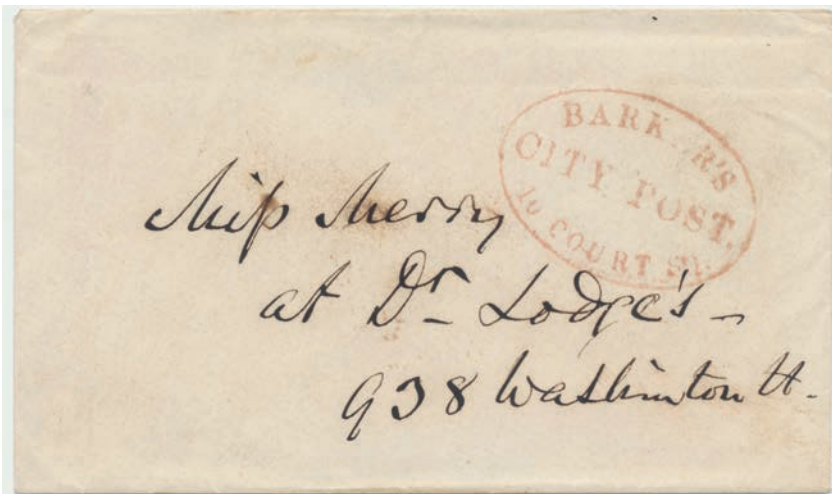 BARK R'S
CITY POST.
10 COURT SQ.
Miss Merry
at Dr Lodge's -
938 Washinton St.